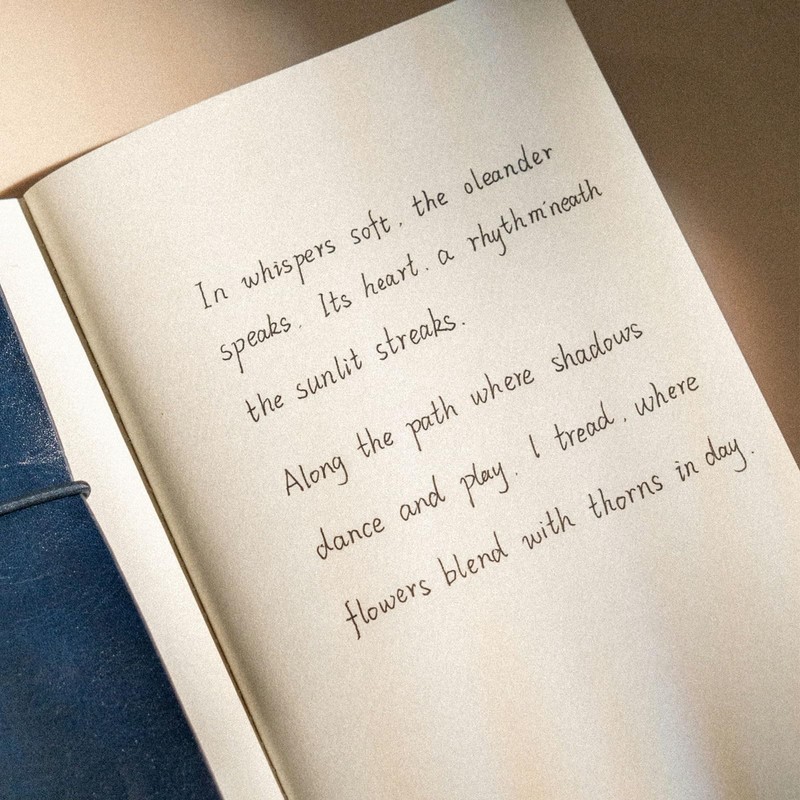 In whispers soft, the oleander
speaks. Its heart. a rhythm'neath
the sunlit streaks.
Along the path where shadows
dance and play. I tread, where
flowers blend with thorns in day.